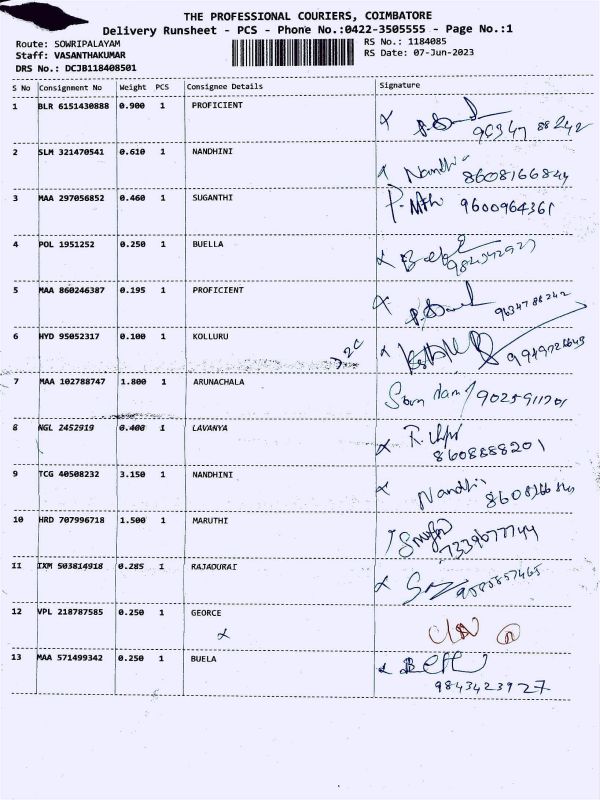 THE PROFESSIONAL COURIERS, COIMBATORE
Delivery Runsheet - PCS - Phone No.:0422-3505555 - Page No.:1
Route: SOWRIPALAYAM
Staff: VASANTHAKUMAR
DRS No.: DCJB118408501
RS No.: 1184085
RS Date: 07-Jun-2023
S No Consignment No Weight PCS Consignee Details Signature
1 BLR 6151430888 0.900 1 PROFICIENT
96347 88242
2 SLM 321470541 0.610 1 NANDHINI
Nandhi 8608166844
3 MAA 297056852 0.460 1 SUGANTHI
9600964361
4 POL 1951252 0.250 1 BUELLA
5 MAA 860246387 0.195 1 PROFICIENT
9634788242
6 HYD 95052317 0.100 1 KOLLURU
7 MAA 102788747 1.800 1 ARUNACHALA
9025911201
8 NGL 2452919 0.400 1 LAVANYA
8608888201
9 TCG 40508232 3.150 1 NANDHINI
Nandhi
10 HRD 707996718 1.500 1 MARUTHI
7339677744
11 IXM 503814918 0.285 1 RAJADURAI
12 VPL 218787585 0.250 1 GEORCE
13 MAA 571499342 0.250 1 BUELA
9843423927